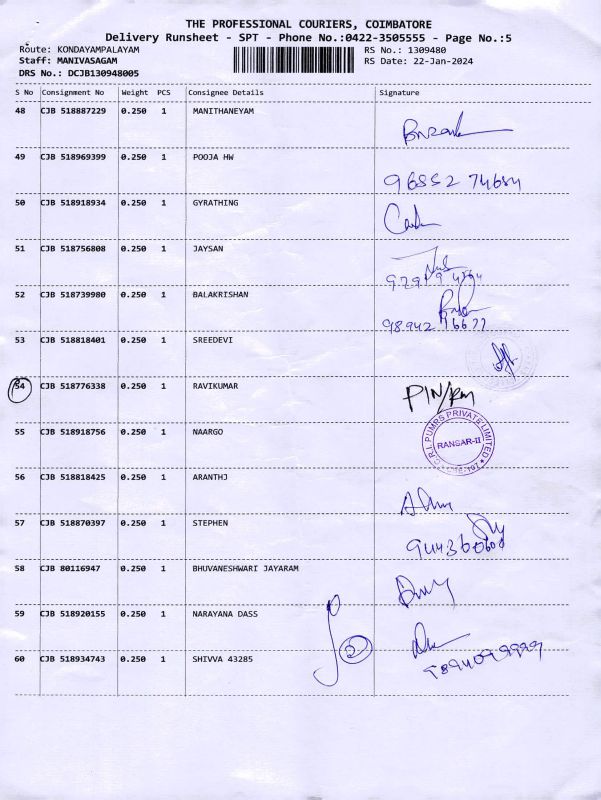 THE PROFESSIONAL COURIERS, COIMBATORE
Delivery Runsheet - SPT - Phone No.:0422-3505555 - Page No.:5
Route: KONDAYAMPALAYAM RS No.: 1309480
Staff: MANIVASAGAM RS Date: 22-Jan-2024
DRS No.: DCJB130948005
S No Consignment No Weight PCS Consignee Details Signature
48 CJB 518887229 0.250 1 MANITHANEYAM
49 CJB 518969399 0.250 1 POOJA HW
96552 74684
50 CJB 518918934 0.250 1 GYRATHING
51 CJB 518756808 0.250 1 JAYSAN
52 CJB 518739980 0.250 1 BALAKRISHAN
98942 16677
53 CJB 518818401 0.250 1 SREEDEVI
54 CJB 518776338 0.250 1 RAVIKUMAR PIN/RM
C.R.I. PUMPS PRIVATE LIMITED
RANSAR-II
55 CJB 518918756 0.250 1 NAARGO
56 CJB 518818425 0.250 1 ARANTHJ
57 CJB 518870397 0.250 1 STEPHEN
58 CJB 80116947 0.250 1 BHUVANESHWARI JAYARAM
59 CJB 518920155 0.250 1 NARAYANA DASS
60 CJB 518934743 0.250 1 SHIVVA 43285